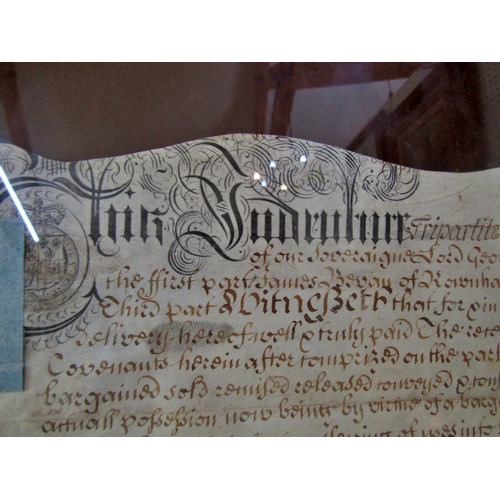 This Indenture Tripartite
of our Soveraigne Lord Geo
the first part James Bevan of
Third part Witnesseth that for & in
delivery hereof well & truly paid The rece
Covenants herein after comprized on the par
bargained sold remised released conveyed & co
actuall possession now being by virtue of a barg
of uses into